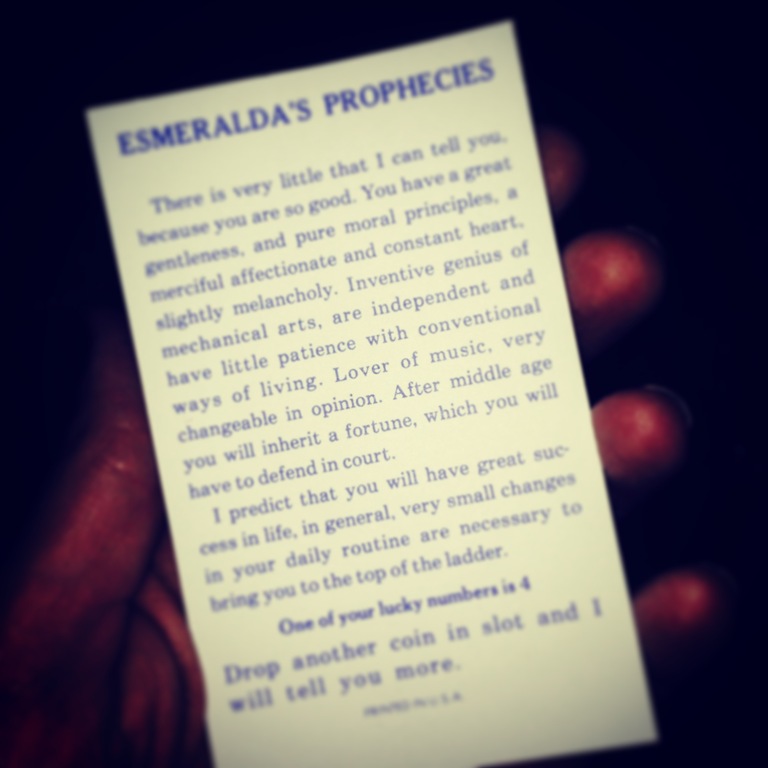 ESMERALDA'S PROPHECIES
There is very little that I can tell you,
because you are so good. You have a great
gentleness, and pure moral principles, a
merciful affectionate and constant heart,
slightly melancholy. Inventive genius of
mechanical arts, are independent and
have little patience with conventional
ways of living. Lover of music, very
changeable in opinion. After middle age
you will inherit a fortune, which you will
have to defend in court.
I predict that you will have great suc-
cess in life, in general, very small changes
in your daily routine are necessary to
bring you to the top of the ladder.
One of your lucky numbers is 4
Drop another coin in slot and I
will tell you more.
PRINTED IN U.S.A.